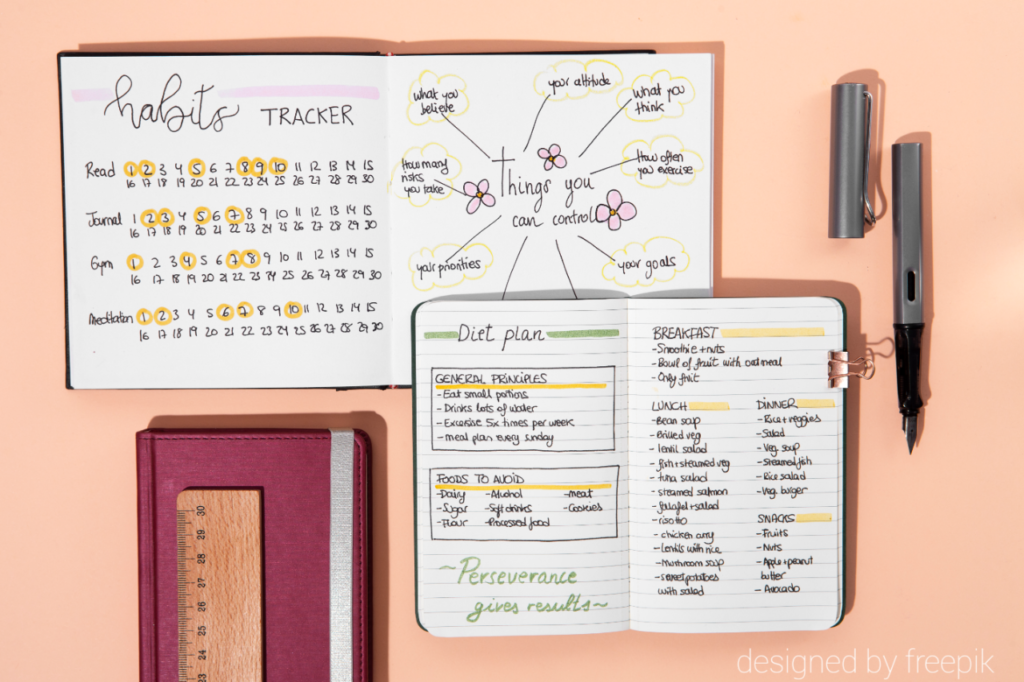 habits TRACKER
Read 1 2 3 4 5 6 7 8 9 10 11 12 13 14 15
16 17 18 19 20 21 22 23 24 25 26 27 28 29 30
Journal 1 2 3 4 5 6 7 8 9 10 11 12 13 14 15
16 17 18 19 20 21 22 23 24 25 26 27 28 29 30
Gym 1 2 3 4 5 6 7 8 9 10 11 12 13 14 15
16 17 18 19 20 21 22 23 24 25 26 27 28 29 30
Meditation 1 2 3 4 5 6 7 8 9 10 11 12 13 14 15
16 17 18 19 20 21 22 23 24 25 26 27 28 29 30
what you
believe
your attitude
what you
think
How many
risks
you take
How often
you exercise
Things you
can control
your priorities
your goals
Diet plan
GENERAL PRINCIPLES
-Eat small portions
-Drinks lots of water
-Excersise Six times per week
-meal plan every sunday
FOODS TO AVOID
-Dairy -Alcohol -meat
-Sugar -Soft drinks -Cookies
-Flour -Processed food
~Perseverance
gives results~
BREAKFAST
-Smoothie +nuts
-Bowl of fruit with oatmeal
-Only fruit
LUNCH
-Bean soup
-Grilled veg
-lentil salad
-fish+steamed veg
-tuna salad
-steamed salmon
-falafel+salad
-risotto
-chicken curry
-Lentils with rice
-Mushroom soup
-sweet potatoes
with salad
DINNER
-Rice+veggies
-Salad
-Veg. soup
-Steamed fish
-Rice salad
-Veg. burger
SNACKS
-Fruits
-Nuts
-Apple+peanut
butter
-Avocado
30
29
28
27
26
25
24
23
designed by freepik